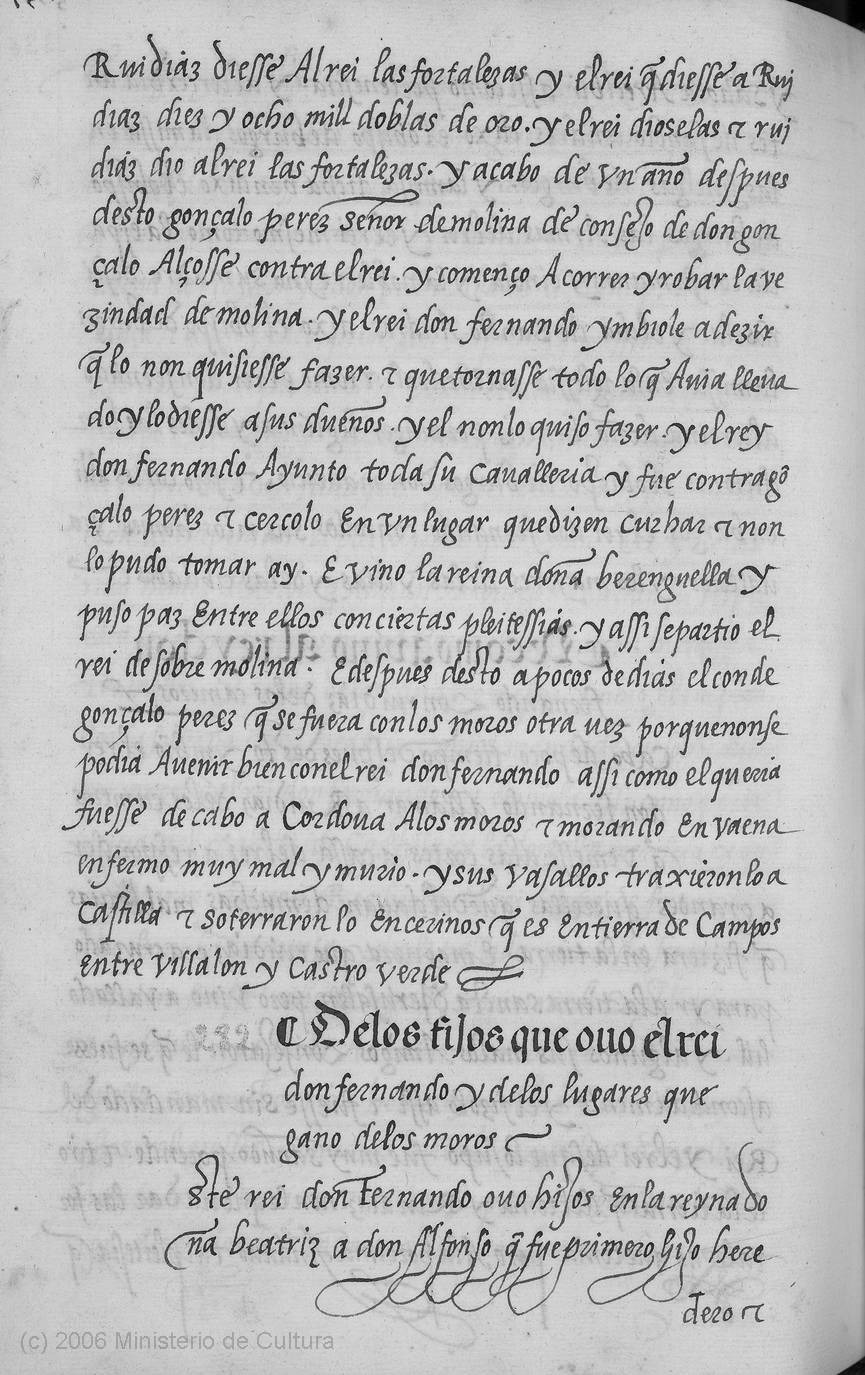 Ruidiaz diesse Al rei las fortalezas y el rei q̃ diesse a Rui
diaz diez y ocho mill doblas de oro. y el rei dioselas τ rui
diaz dio al rei las fortalezas. y acabo de vn año despues
desto gonçalo perez señor de molina de consejo de don gon
çalo Alçosse contra el rei. y començo A correr y robar la ve
zindad de molina. y el rei don fernando ymbiole a dezir
q̃ lo non quisiesse fazer. τ que tornasse todo lo q̃ Auia lleua
do y lo diesse a sus dueños. y el non lo quiso fazer. y el rey
don fernando Ayunto toda su Caualleria y fue contra gõ
çalo perez τ cercolo En vn lugar que dizen curhar τ non
lo pudo tomar ay. E vino la reina doña berenguella y
puso paz Entre ellos con ciertas pleitessias. y assi se partio el
rei de sobre molina. E despues desto a pocos de dias el conde
gonçalo perez q̃ se fuera con los moros otra vez porque non se
podia Auenir bien con el rei don fernando assi como el queria
fuesse de cabo a Cordoua A los moros τ morando En vaena
enfermo muy mal y murio. y sus vasallos traxieron lo a
Castilla τ soterraron lo En cerinos q̃ es En tierra de Campos
Entre villalon y Castro verde
¶ De los fijos que ouo el rei
don fernando y de los lugares que
gano de los moros
Este rei don Fernando ouo hijos En la reyna do
ña beatriz a don Alfonso q̃ fue primero hijo here
dero τ
(c) 2006 Ministerio de Cultura